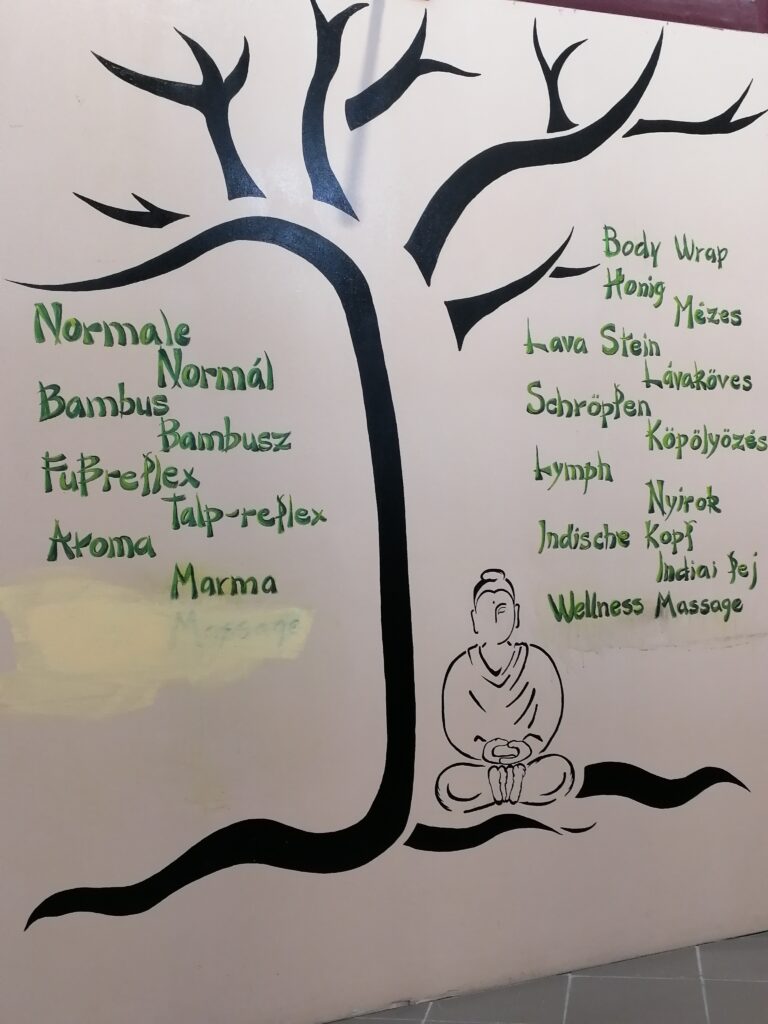 Normale
Normál
Bambus
Bambusz
Fußreflex
Talp-reflex
Aroma
Marma
Massage
Body Wrap
Honig
Mézes
Lava Stein
Lávaköves
Schröpfen
Köpölyözés
Lymph
Nyirok
Indische Kopf
Indiai fej
Wellness Massage